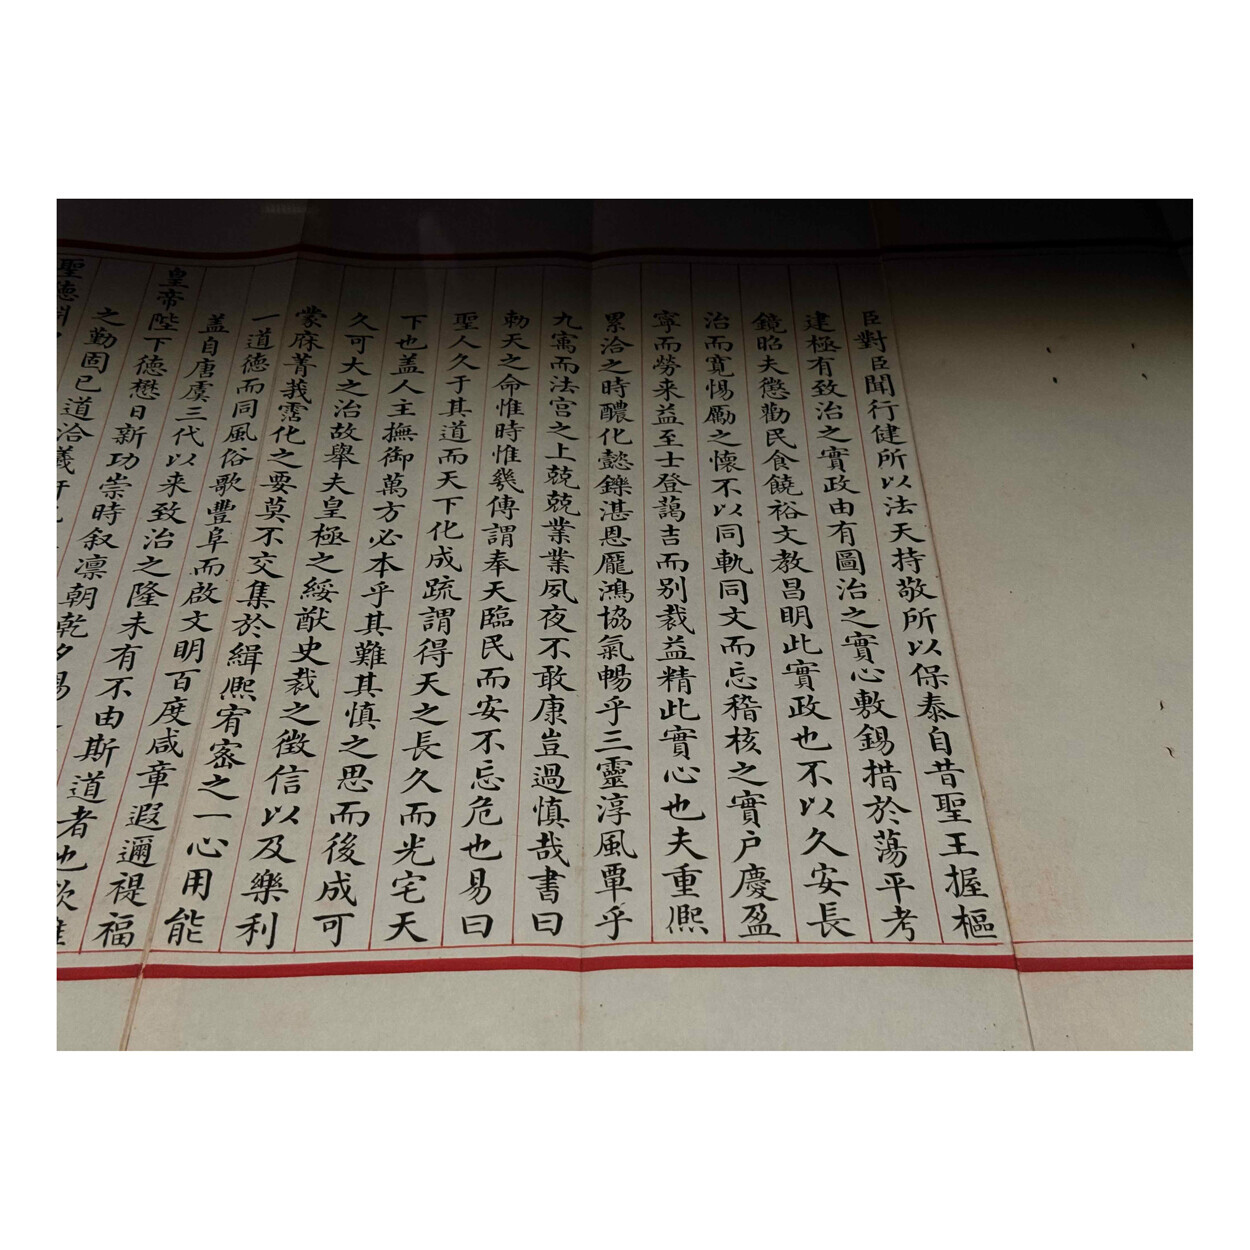 臣對臣聞行健所以法天持敬所以保泰自昔聖王握樞
建極有致治之實政由有圖治之實心敷錫措於蕩平考
鏡昭夫懲勸民食饒裕文教昌明此實政也不以久安長
治而寬惕勵之懷不以同軌同文而忘稽核之實户慶盈
寧而勞来益至士登藹吉而别裁益精此實心也夫重熙
累洽之時醲化懿鑠湛恩龐鴻協氣暢乎三靈淳風覃乎
九㝢而法宫之上兢兢業業夙夜不敢康豈過慎哉書曰
勅天之命惟時惟幾傳謂奉天臨民而安不忘危也易曰
聖人久于其道而天下化成疏謂得天之長久而光宅天
下也盖人主撫御萬方必本乎其難其慎之思而後成可
久可大之治故舉夫皇極之綏猷史裁之徵信以及樂利
蒙庥菁莪霑化之要莫不交集於緝熙宥密之一心用能
一道德而同風俗歌豐阜而啟文明百度咸章遐邇禔福
盖自唐虞三代以来致治之隆未有不由斯道者也欽惟
皇帝陛下德懋日新功崇時叙凛朝乾夕惕
之勤固已道洽
聖德